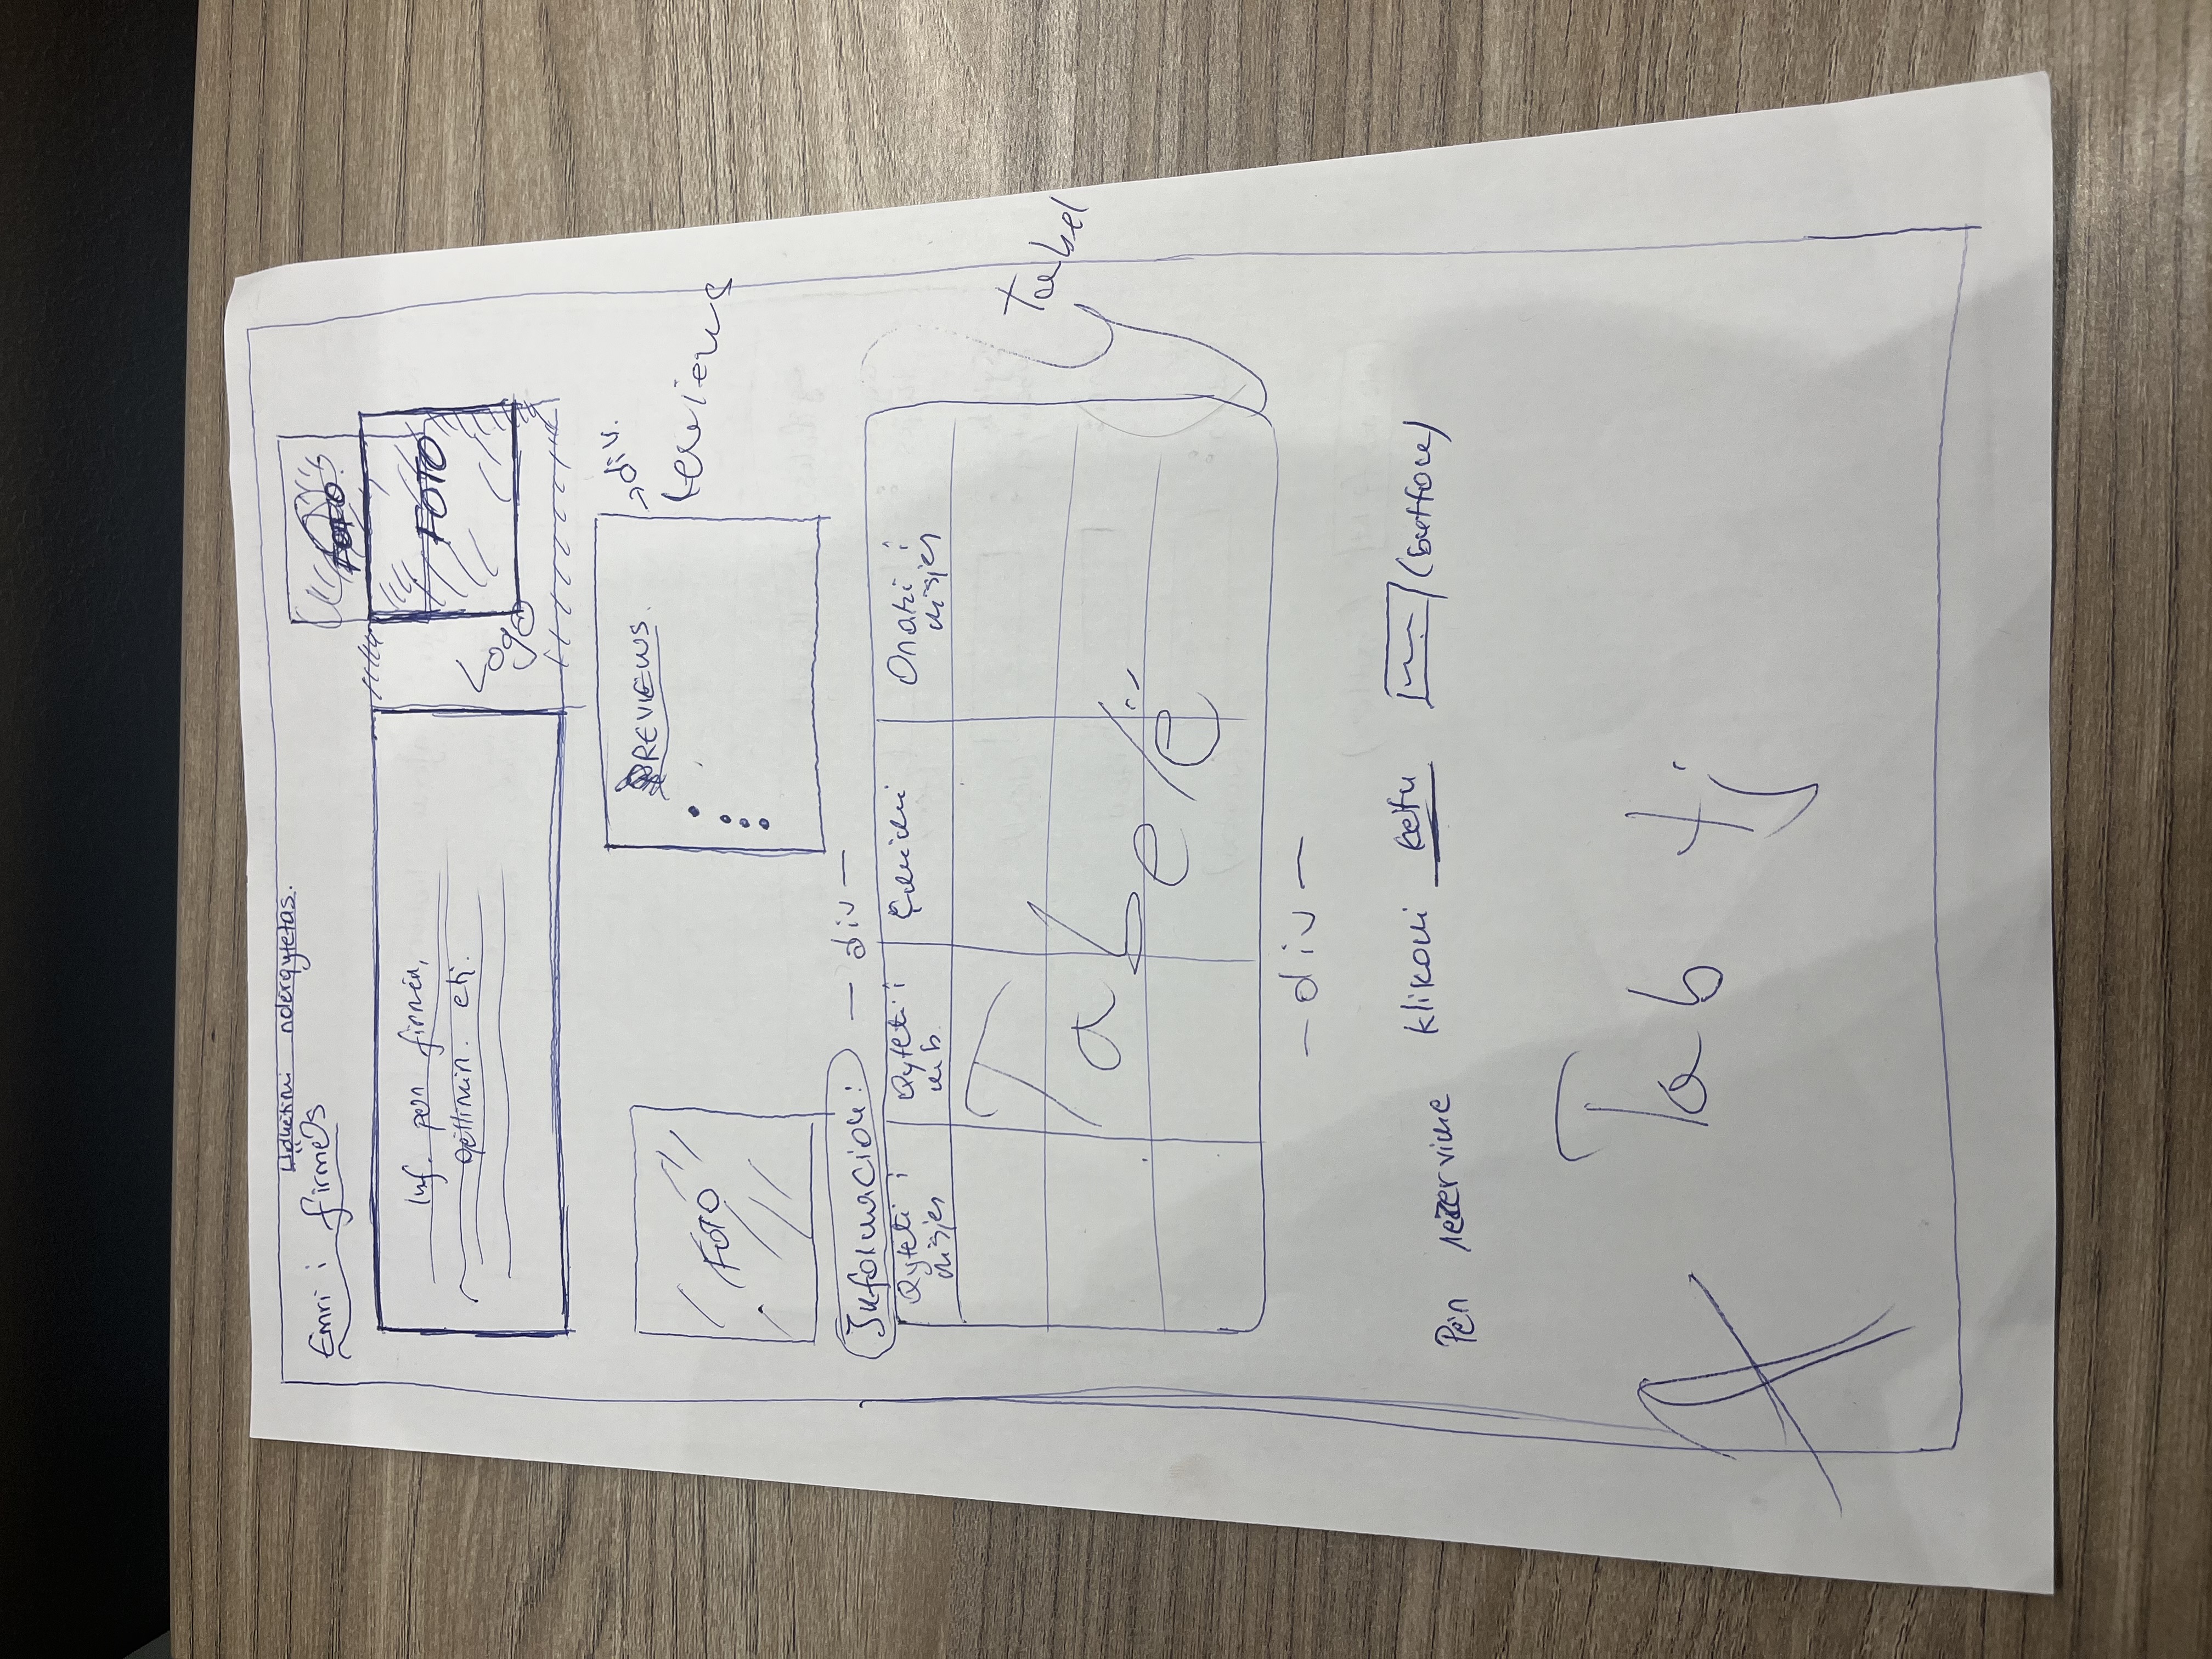 Udhëtimi ndërqytetas.
Emri i firmës
FOTO
Inf. për firmën,
qëllimin. etj.
FOTO
Logo
REVIEWS
→ div.
reviews
FOTO
Informacion:
— div —
Qyteti i nisjes
Qyteti i mb.
Çmimi
Orari i nisjes
Tabelë
Tabel
— div —
Për rezervime klikoni këtu (button)
Tab tj